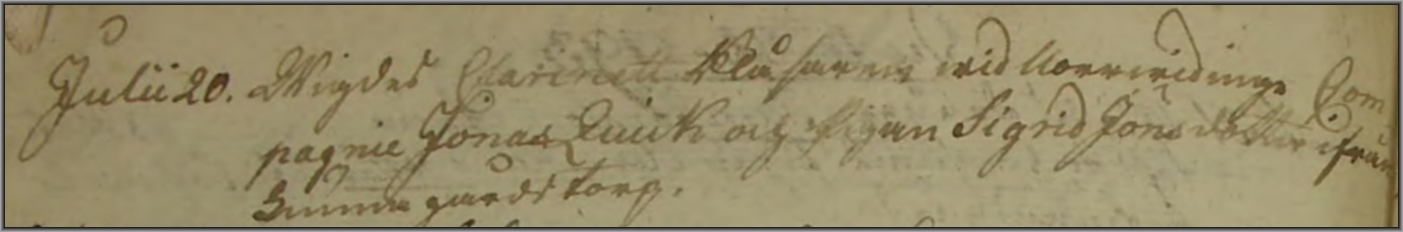 Julii 20. Wigdes Clarinett Blåsaren wid Norrvidinge Com
pagnie Jonas Quick och Pigan Sigrid Jons dotter ifrån
gårds torp.